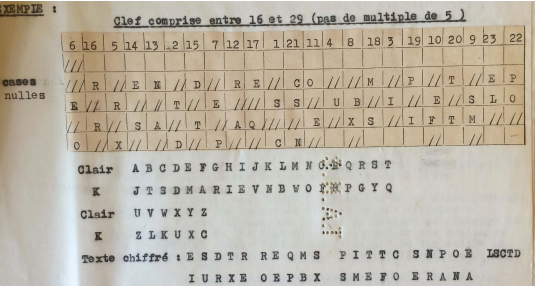 EXEMPLE :
Clef comprise entre 16 et 29 (pas de multiple de 5 )
6 16 5 14 13 2 15 7 12 17 1 21 11 4 8 18 3 19 10 20 9 23 22
///
cases
nulles
// R // E N // D // R E // C O // // M // P // T // E P
E // R // // T // E // // S S // U B // I // E // S L O
// R // S A // T // A Q // // E // X S // I F T M // //
O // X // // D // P // // C N // // //
Clair A B C D E F G H I J K L M N O P Q R S T
K J T S D M A R I E V N B W O F H P G Y Q
Clair U V W X Y Z
K Z L K U X C
Texte chiffré : E S D T R R E Q M S P I T T C S N P O E LSCTD
I U R X E O E P B X S M E F O E R A N A